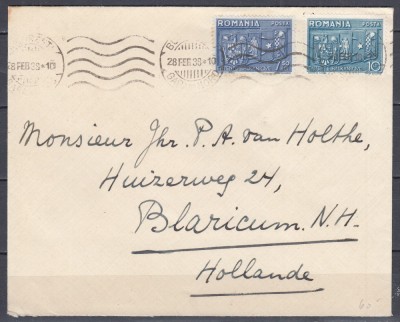 ROMANIA POSTA ROMANIA POSTA
28 FEB 38 • 10 28 FEB 38 • 10 7,50 10
Monsieur Jhr. P. A. van Holthe,
Huizerweg 24,
Blaricum. N.H.
Hollande